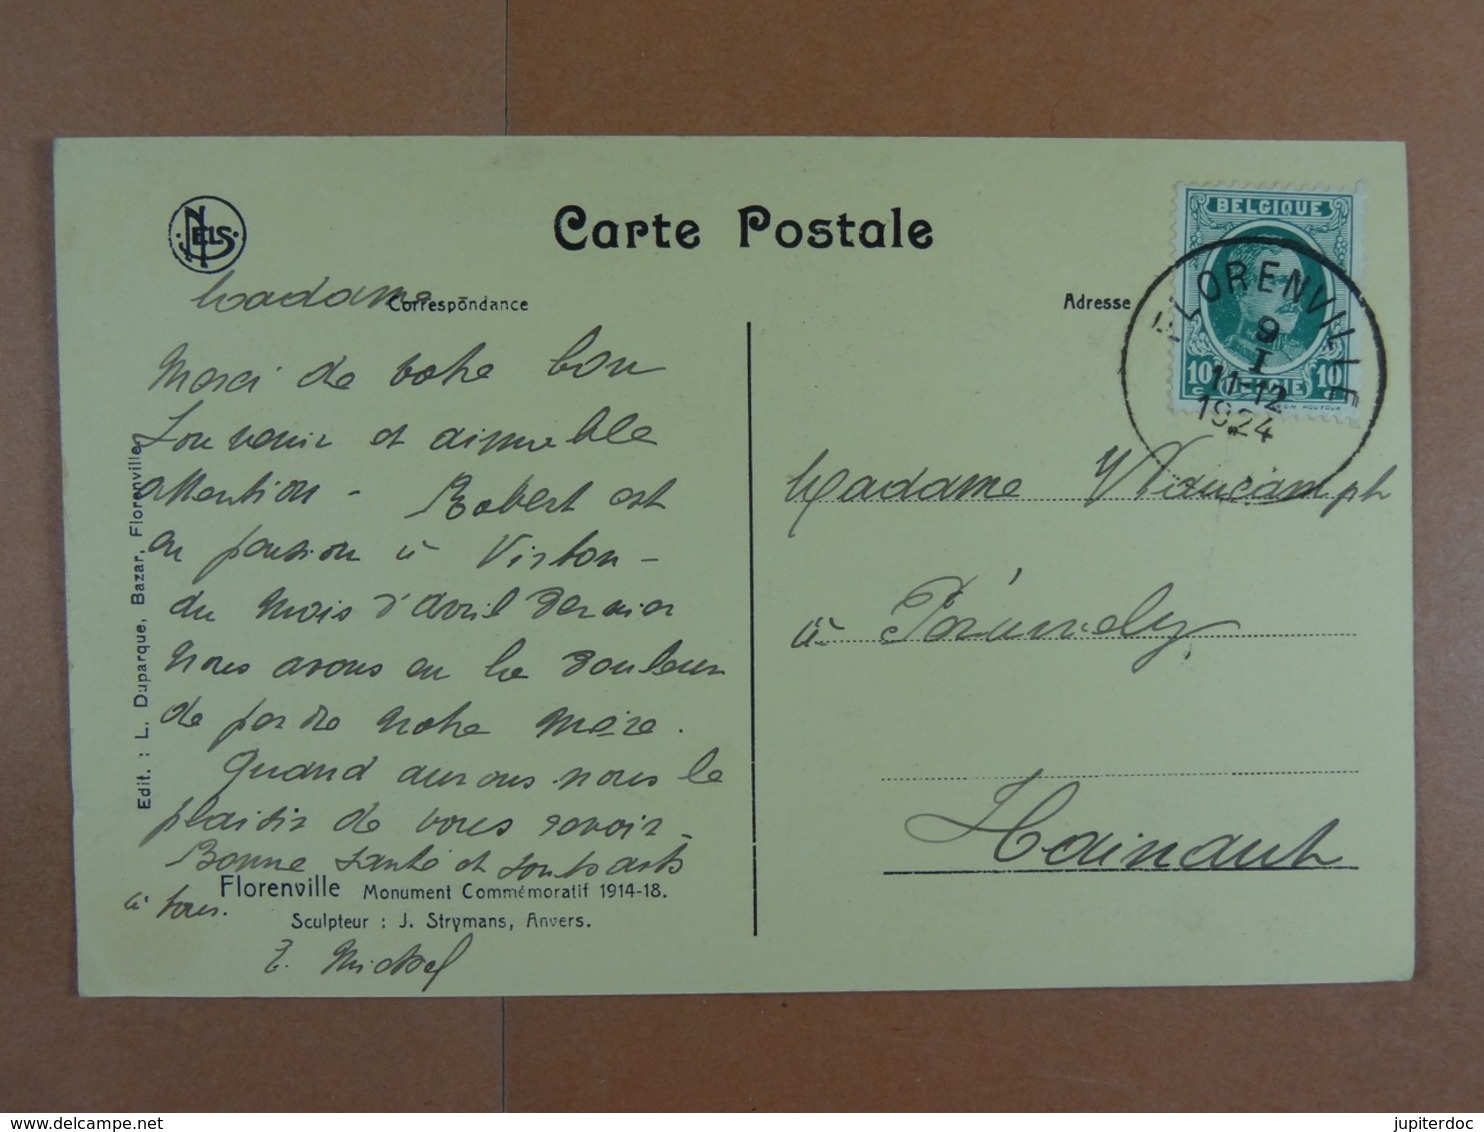 NELS
Carte Postale
Correspondance
Adresse
BELGIQUE
10 c
BELGIE
10 c
FLORENVILLE
9
I
11-12
1924
Madame
Merci de votre bon
Souvenir et aimable
attention - Robert est
en pension à Virton -
du mois d'avril dernier
Nous avons eu la douleur
de perdre notre mère.
Quand aurons nous le
plaisir de vous revoir -
Bonne santé et souhaits
à tous.
Z. Michel
Madame
à Péruwelz
Hainaut
Edit. : L. Duparque, Bazar, Florenville
Florenville Monument Commémoratif 1914-18.
Sculpteur : J. Strymans, Anvers.
delcampe.net
jupiterdoc